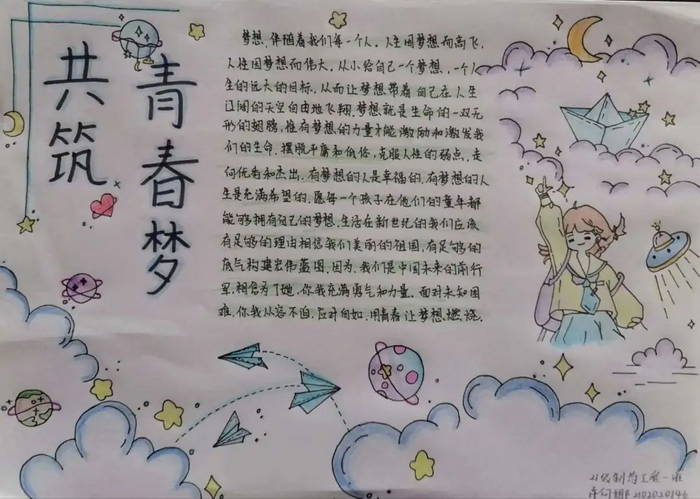 共筑
青春梦
梦想,伴随着我们每一个人。人生因梦想而高飞,
人性因梦想而伟大。从小给自己一个梦想,一个人
生的远大的目标,从而让梦想带着自己在人生
辽阔的天空自由地飞翔.梦想就是生命的一双无
形的翅膀,惟有梦想的力量才能激励和激发我
们的生命.摆脱平庸和低俗,克服人性的弱点,走
向优秀和杰出.有梦想的人是幸福的.有梦想的人
生是充满希望的.愿每一个孩子在他们的童年都
能够拥有自己的梦想.生活在新世纪的我们应该
有足够的理由相信我们美丽的祖国,有足够的
底气构建宏伟蓝图.因为,我们是中国未来的前行
军.相信为了她,你我充满勇气和力量.面对未知困
难,你我从容不迫,应对自如,用青春让梦想燃烧.
21级制药工艺一班
2102020146